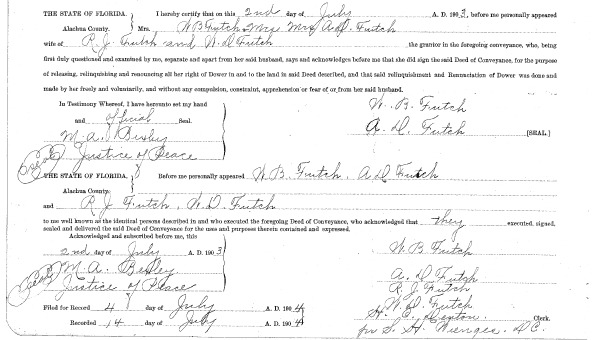 THE STATE OF FLORIDA. I hereby certify that on this 2nd day of July A. D. 1903, before me personally appeared
Alachua County. Mrs. W B Futch Mrs A. D. Futch
wife of R. J. Futch and W. D Futch the grantor in the foregoing conveyance, who, being
first duly questioned and examined by me, separate and apart from her said husband, says and acknowledges before me that she did sign the said Deed of Conveyance, for the purpose
of releasing, relinquishing and renouncing all her right of Dower in and to the land in said Deed described, and that said relinquishment and Renunciation of Dower was done and
made by her freely and voluntarily, and without any compulsion, constraint, apprehension or fear of or from her said husband.
In Testimony Whereof, I have hereunto set my hand W. B. Futch
and official Seal. A. D. Futch [SEAL.]
M. A.
(Seal) Justice of Peace
THE STATE OF FLORIDA. Before me personally appeared W B. Futch, A D Futch
Alachua County.
and R. J Futch, W. D. Futch
to me well known as the identical persons described in and who executed the foregoing Deed of Conveyance, who acknowledged that they executed, signed,
sealed and delivered the said Deed of Conveyance for the uses and purposes therein contained and expressed.
Acknowledged and subscribed before me, this
2nd day of July A. D. 1903 W. B Futch
M. A. A. D Futch
(Seal) Justice of Peace R. J Futch
Filed for Record 4 day of July A. D. 1904 W. D. Futch
H. C. Denton. Clerk.
Recorded 14 day of July A. D. 1904 per S. H. D. C.